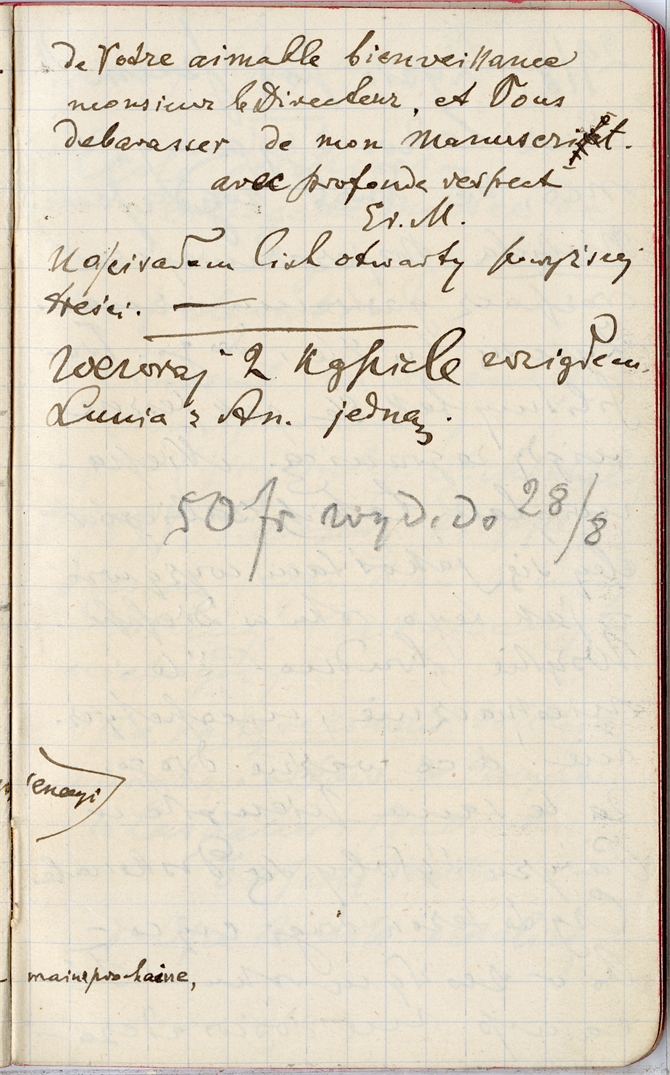 de Votre aimable bienveillance
monsieur le Directeur, et Vous
debarasser de mon Manuscript.
avec profonde respect
Er. M.
Napisałem list otwarty powyższej
treści. —
Wczoraj 2 Kąpiele wziąłem.
Lunia z An. jedną.
50 fr wyd. do 28/8
maine prochaine,